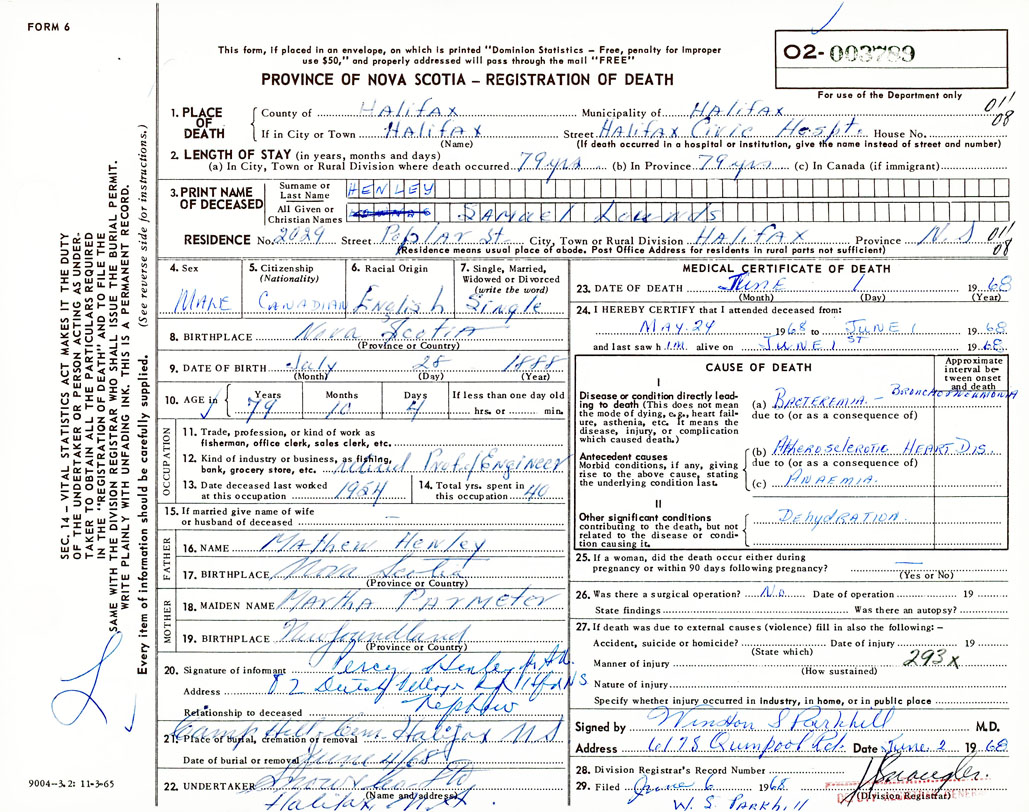 FORM 6
This form, if placed in an envelope, on which is printed "Dominion Statistics – Free, penalty for improper
use $50," and properly addressed will pass through the mail "FREE"
PROVINCE OF NOVA SCOTIA – REGISTRATION OF DEATH
02-003789
For use of the Department only
1. PLACE OF DEATH
County of Halifax Municipality of Halifax 011
If in City or Town Halifax Street Halifax Civic Hospt. House No. 08
(Name) (If death occurred in a hospital or institution, give the name instead of street and number)
2. LENGTH OF STAY (in years, months and days)
(a) In City, Town or Rural Division where death occurred 79 yrs (b) In Province 79 yrs (c) In Canada (if immigrant)
3. PRINT NAME OF DECEASED
Surname or Last Name HENLEY
All Given or Christian Names Samuel Lownds
RESIDENCE No. 2029 Street Poplar St. City, Town or Rural Division HALIFAX Province N.S 011
(Residence means usual place of abode. Post Office Address for residents in rural parts not sufficient) 08
4. Sex MALE
5. Citizenship (Nationality) Canadian
6. Racial Origin English
7. Single, Married, Widowed or Divorced (write the word) Single
8. BIRTHPLACE Nova Scotia
(Province or Country)
9. DATE OF BIRTH July 28 1888
(Month) (Day) (Year)
10. AGE in Years 79 Months 10 Days 4 If less than one day old hrs. or min.
OCCUPATION
11. Trade, profession, or kind of work as
fisherman, office clerk, sales clerk, etc.
12. Kind of industry or business, as fishing,
bank, grocery store, etc. retired Prof/Engineer
13. Date deceased last worked
at this occupation 1954
14. Total yrs. spent in
this occupation 40
15. If married give name of wife
or husband of deceased –
FATHER
16. NAME Mathew Henley
17. BIRTHPLACE Nova Scotia
(Province or Country)
MOTHER
18. MAIDEN NAME Martha Parmeter
19. BIRTHPLACE Newfoundland
(Province or Country)
20. Signature of informant Percy Henley
Address 82 Dutch Village Rd Hfx NS
Relationship to deceased Nephew
21. Place of burial, cremation or removal Camp Hill Cem Halifax NS
Date of burial or removal June 4/68
22. UNDERTAKER
(Name and address)
Halifax N.S.
MEDICAL CERTIFICATE OF DEATH
23. DATE OF DEATH JUNE 1 1968
(Month) (Day) (Year)
24. I HEREBY CERTIFY that I attended deceased from:
MAY. 24 1968 to JUNE 1 1968
and last saw him alive on JUNE 1ST 1968.
CAUSE OF DEATH
Approximate interval between onset and death
I
Disease or condition directly leading to death (This does not mean the mode of dying, e.g., heart failure, asthenia, etc. It means the disease, injury, or complication which caused death.)
(a) BACTEREMIA – BRONCHOPNEUMONIA
due to (or as a consequence of)
Antecedent causes
Morbid conditions, if any, giving rise to the above cause, stating the underlying condition last.
(b) Atherosclerotic HEART DIS.
due to (or as a consequence of)
(c) ANAEMIA.
II
Other significant conditions contributing to the death, but not related to the disease or condition causing it.
DEHYDRATION.
25. If a woman, did the death occur either during
pregnancy or within 90 days following pregnancy? –
(Yes or No)
26. Was there a surgical operation? No Date of operation 19
State findings Was there an autopsy?
27. If death was due to external causes (violence) fill in also the following: –
Accident, suicide or homicide? Date of injury 19
(State which)
Manner of injury 293x
(How sustained)
Nature of injury
Specify whether injury occurred in Industry, in home, or in public place
Signed by Winston S Parkhill M.D.
Address 6178 Quinpool Rd. Date June 2 1968
28. Division Registrar's Record Number
29. Filed June 6 1968
(Division Registrar)
W. S. PARKHILL
SEC. 14 – VITAL STATISTICS ACT MAKES IT THE DUTY
OF THE UNDERTAKER OR PERSON ACTING AS UNDERTAKER
TO OBTAIN ALL THE PARTICULARS REQUIRED
IN THE "REGISTRATION OF DEATH" AND TO FILE THE
SAME WITH THE DIVISION REGISTRAR WHO SHALL ISSUE THE BURIAL PERMIT.
WRITE PLAINLY WITH UNFADING INK. THIS IS A PERMANENT RECORD.
Every item of information should be carefully supplied. (See reverse side for instructions.)
9004–3.2: 11-3-65